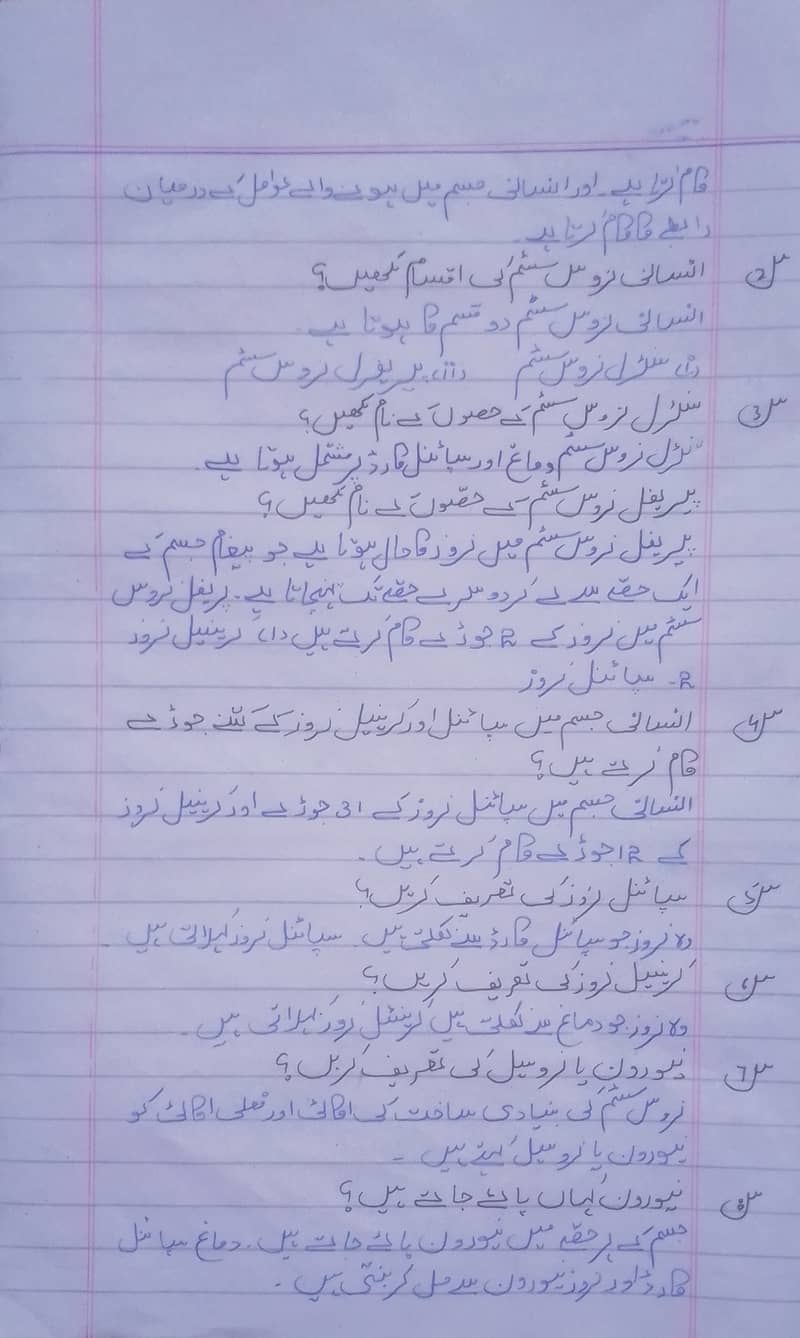 کام کرتا ہے۔ اور انسانی جسم میں ہونے والے عوامل کے درمیان
رابطے کا کام کرتا ہے۔
س2 انسانی نروس سسٹم کی اقسام لکھیں؟
انسانی نروس سسٹم دو قسم کا ہوتا ہے۔
(i) سنٹرل نروس سسٹم (ii) پیریفرل نروس سسٹم
س3 سنٹرل نروس سسٹم کے حصوں کے نام لکھیں؟
سنٹرل نروس سسٹم دماغ اور سپائنل کارڈ پر مشتمل ہوتا ہے۔
پیریفل نروس سسٹم کے حصّوں کے نام لکھیں؟
پیریفل نروس سسٹم میں نروز کا جال ہوتا ہے جو پیغام جسم کے
ایک حصّے سے لے کر دوسرے حصّے تک پہنچاتا ہے۔ پریفل نروس
سسٹم میں نروز کے 2 جوڑے کام کرتے ہیں (1) کرینیل نروز
2۔ سپائنل نروز
س4 انسانی جسم میں سپائنل اور کرینیل نروز کے کتنے جوڑے
کام کرتے ہیں؟
انسانی جسم میں سپائنل نروز کے 31 جوڑے اور کرینیل نروز
کے 12 جوڑے کام کرتے ہیں۔
س5 سپائنل نروز کی تعریف کریں؟
وہ نروز جو سپائنل کارڈ سے نکلتی ہیں۔ سپائنل نروز کہلاتی ہیں۔
س6 کرینیل نروز کی تعریف کریں؟
وہ نروز جو دماغ سے نکلتی ہیں کرینئل نروز کہلاتی ہیں۔
س7 نیورون یا نرو سیل کی تعریف کریں؟
نروس سسٹم کی بنیادی ساخت کی اکائی اور فعلی اکائی کو
نیورون یا نرو سیل کہتے ہیں۔
س8 نیورون کہاں پائے جاتے ہیں؟
جسم کے ہر حصّے میں نیورون پائے جاتے ہیں۔ دماغ سپائنل
کارڈ اور نروز نیورون سے مل کر بنتی ہیں۔